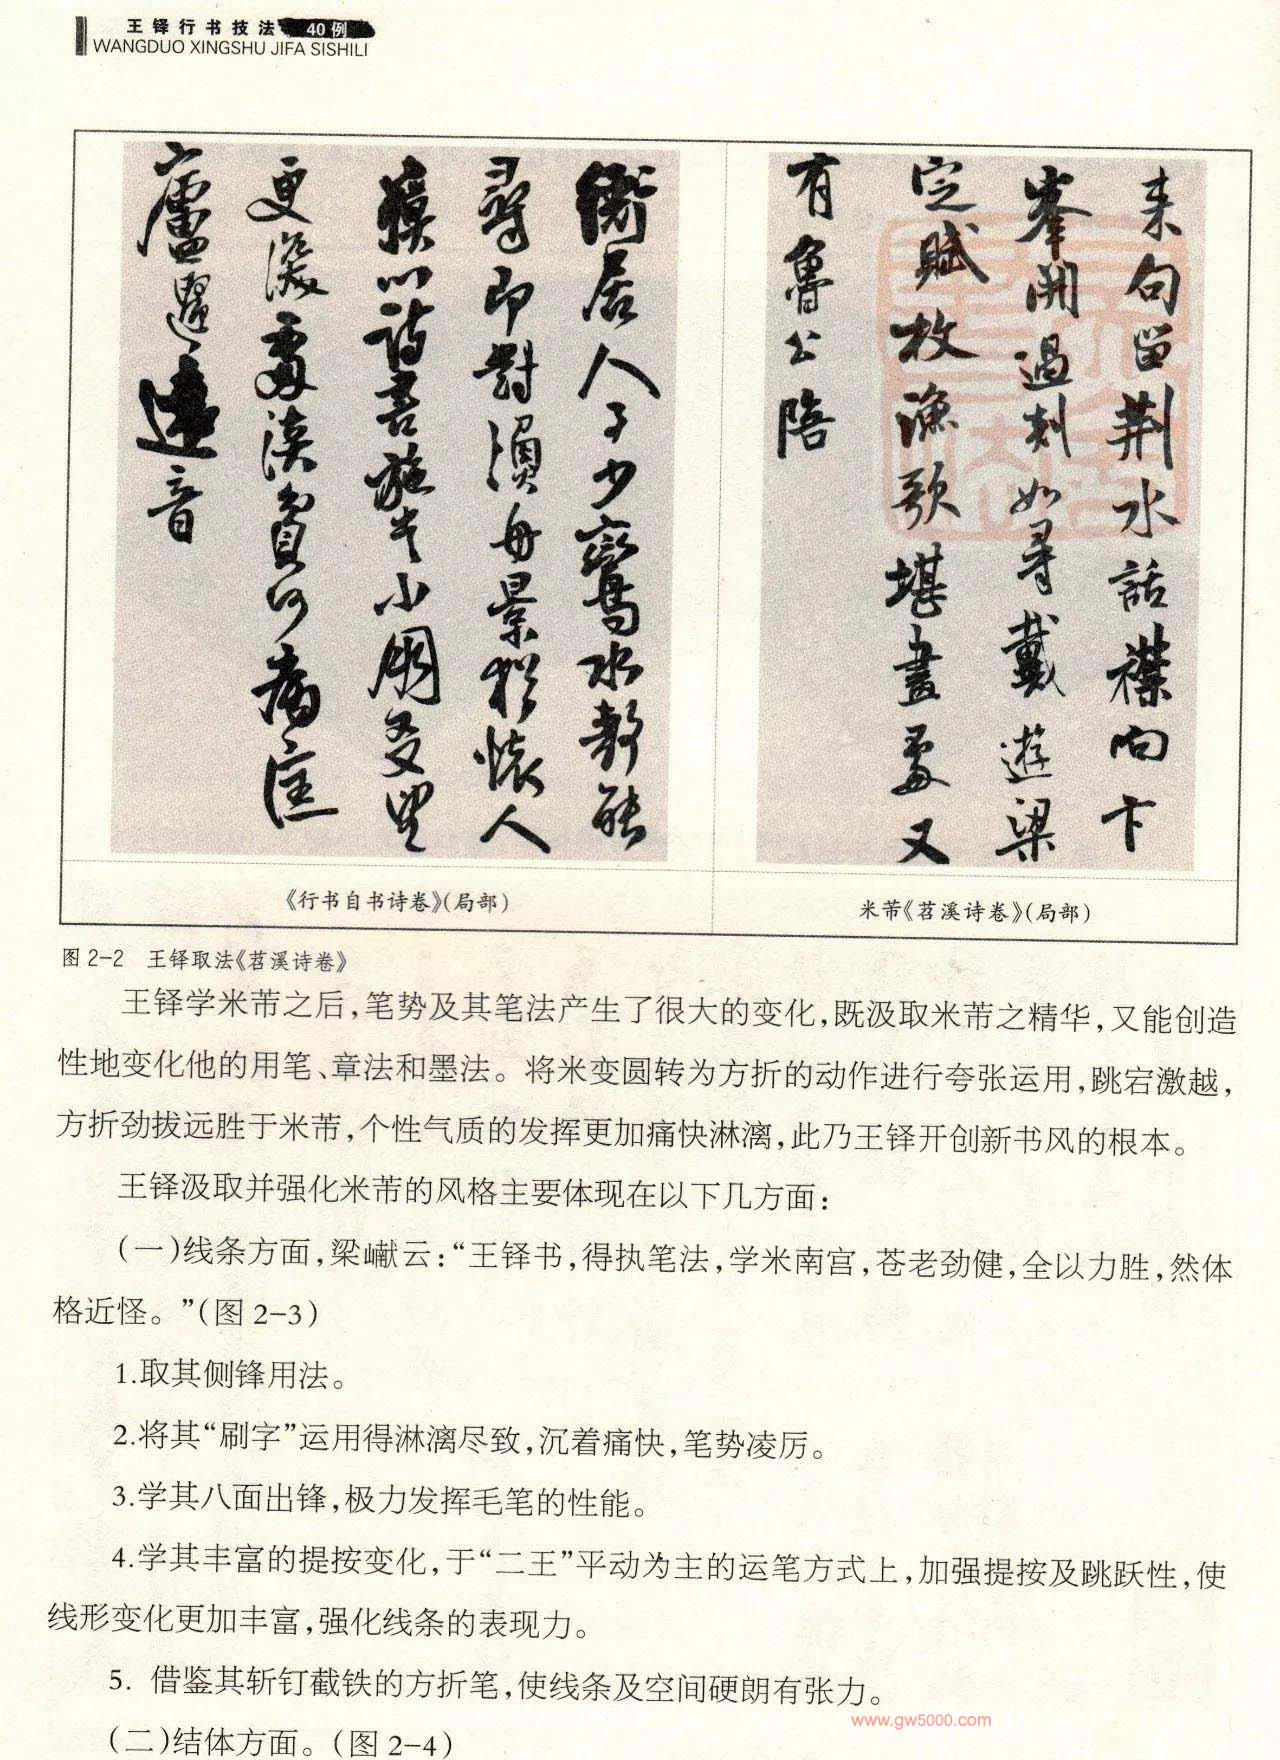 王铎行书技法 40例
WANGDUO XINGSHU JIFA SISHILI
居人 少 水 能
尋即對 景 懷人
以詩書 小
更深處
遠音
《行书自书诗卷》(局部)
来句留荆水話襟向卞
峯開過剡如尋戴遊梁
定賦枚漁歌堪畫處又
有魯公陪
米芾《苕溪诗卷》(局部)
图 2-2 王铎取法《苕溪诗卷》
王铎学米芾之后,笔势及其笔法产生了很大的变化,既汲取米芾之精华,又能创造
性地变化他的用笔、章法和墨法。将米变圆转为方折的动作进行夸张运用,跳宕激越,
方折劲拔远胜于米芾,个性气质的发挥更加痛快淋漓,此乃王铎开创新书风的根本。
王铎汲取并强化米芾的风格主要体现在以下几方面:
(一)线条方面,梁巘云:“王铎书,得执笔法,学米南宫,苍老劲健,全以力胜,然体
格近怪。”(图 2-3)
1.取其侧锋用法。
2.将其“刷字”运用得淋漓尽致,沉着痛快,笔势凌厉。
3.学其八面出锋,极力发挥毛笔的性能。
4.学其丰富的提按变化,于“二王”平动为主的运笔方式上,加强提按及跳跃性,使
线形变化更加丰富,强化线条的表现力。
5. 借鉴其斩钉截铁的方折笔,使线条及空间硬朗有张力。
www.gw5000.com
(二)结体方面。(图 2-4)